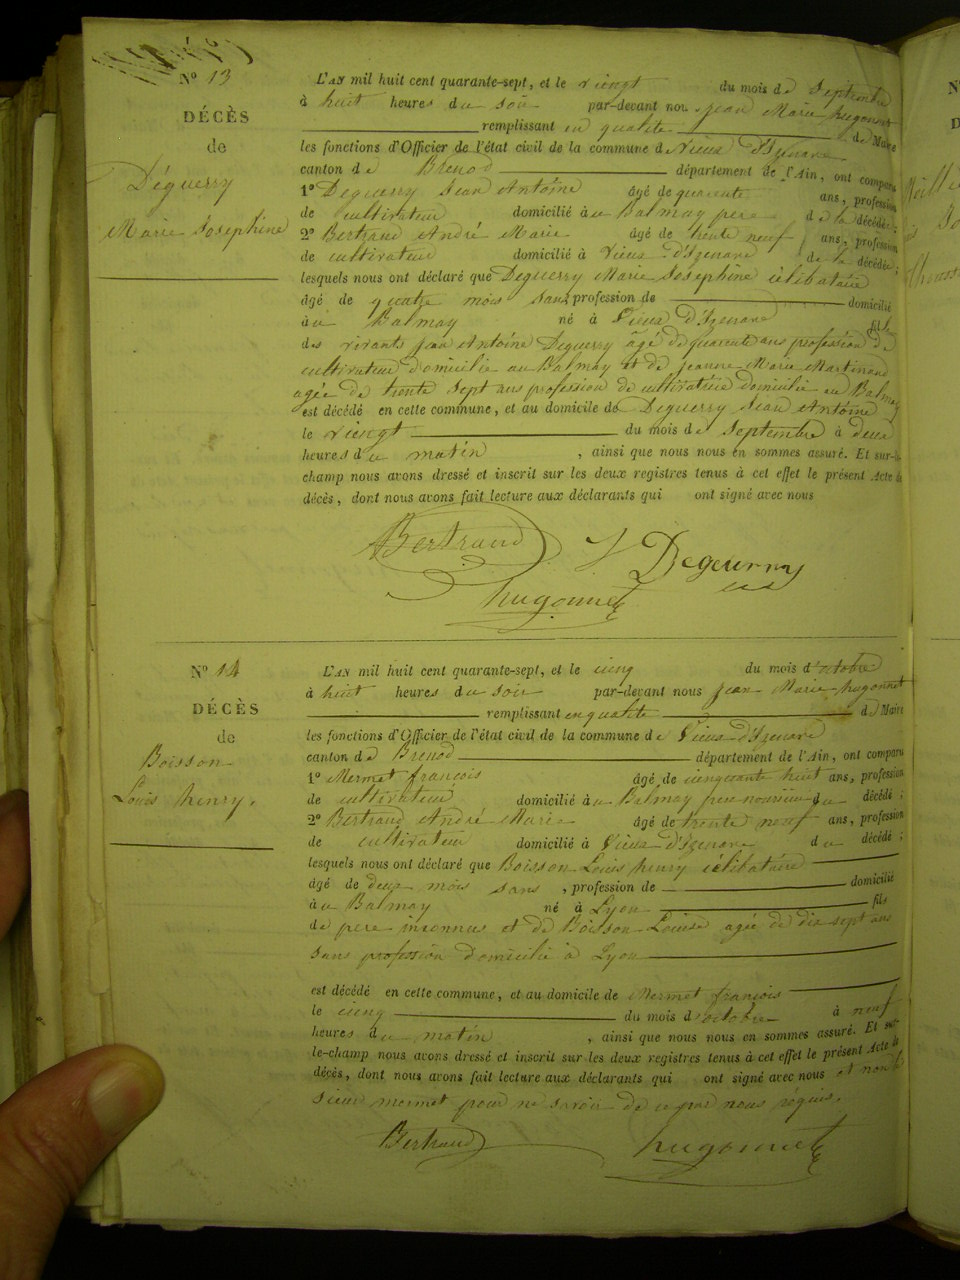 Nº 13
DÉCÈS
de
Déguerry
Marie Josephine
L'AN mil huit cent quarante-sept, et le viengt du mois de Septembre
à huit heures du soir par-devant nous Jean Marie hugonnet
remplissant en qualité de Maire
les fonctions d'Officier de l'état civil de la commune de Vieux d'Izenave
canton de Brenod département de l'Ain, ont comparu
1º Deguerry Jean Antoine âgé de quarente ans, profession
de cultivateur domicilié au Balmay pere de la décédée;
2º Bertrand André Marie âgé de trente neuf ans, profession
de cultivateur domicilié à Vieux d'Izenave de la décédée;
lesquels nous ont déclaré que Deguerry Marie Josephine célibataire
âgé de quatre mois sans profession de domicilié
au Balmay né à Vieux d'Izenave fils
des vivants Jean Antoine Deguerry âgé de quarente ans profession de
cultivateur domicilié au Balmay et de Jeanne Marie Martinand
agée de trente sept ans profession de cultivatrice domicilié au Balmay
est décédé en cette commune, et au domicile de Deguerry Jean Antoine
le viengt du mois de Septembre à deux
heures du matin, ainsi que nous nous en sommes assuré. Et sur-le-
champ nous avons dressé et inscrit sur les deux registres tenus à cet effet le présent Acte de
décès, dont nous avons fait lecture aux déclarants qui ont signé avec nous
Bertrand J Degeurry
hugonnet
Nº 14
DÉCÈS
de
Boisson
Louis henry.
L'AN mil huit cent quarante-sept, et le cienq du mois d'octobre
à huit heures du soir par-devant nous jean Marie hugonnet
remplissant en qualité de Maire
les fonctions d'Officier de l'état civil de la commune de Vieux d'Izenave
canton de Brenod département de l'Ain, ont comparu
1º Mermet francois âgé de cienquante huit ans, profession
de cultivateur domicilié au Balmay pere nourricier du décédé;
2º Bertrand André Marie âgé de trente neuf ans, profession
de cultivateur domicilié à Vieux d'Izenave du décédé;
lesquels nous ont déclaré que Boisson Louis henry célibataire
âgé de deux mois sans, profession de domicilié
au Balmay né à Lyon fils
de pere inconnus et de Boisson Louise agée de dix sept ans
sans profession domicilié à Lyon
est décédé en cette commune, et au domicile de Mermet francois
le cienq du mois d'octobre à neuf
heures du matin, ainsi que nous nous en sommes assuré. Et sur-
le-champ nous avons dressé et inscrit sur les deux registres tenus à cet effet le présent Acte de
décès, dont nous avons fait lecture aux déclarants qui ont signé avec nous et non le
Sieur mermet pour ne savoir de ce par nous requis.
Bertrand hugonnet